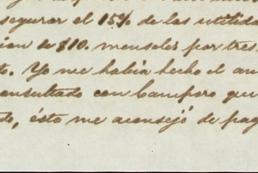 segurar el 15% de las utilida
ion de $10. menseles por tres
o. Yo me habia hecho el an
onsultado con Campero que
do, éste me aconsejó de pag